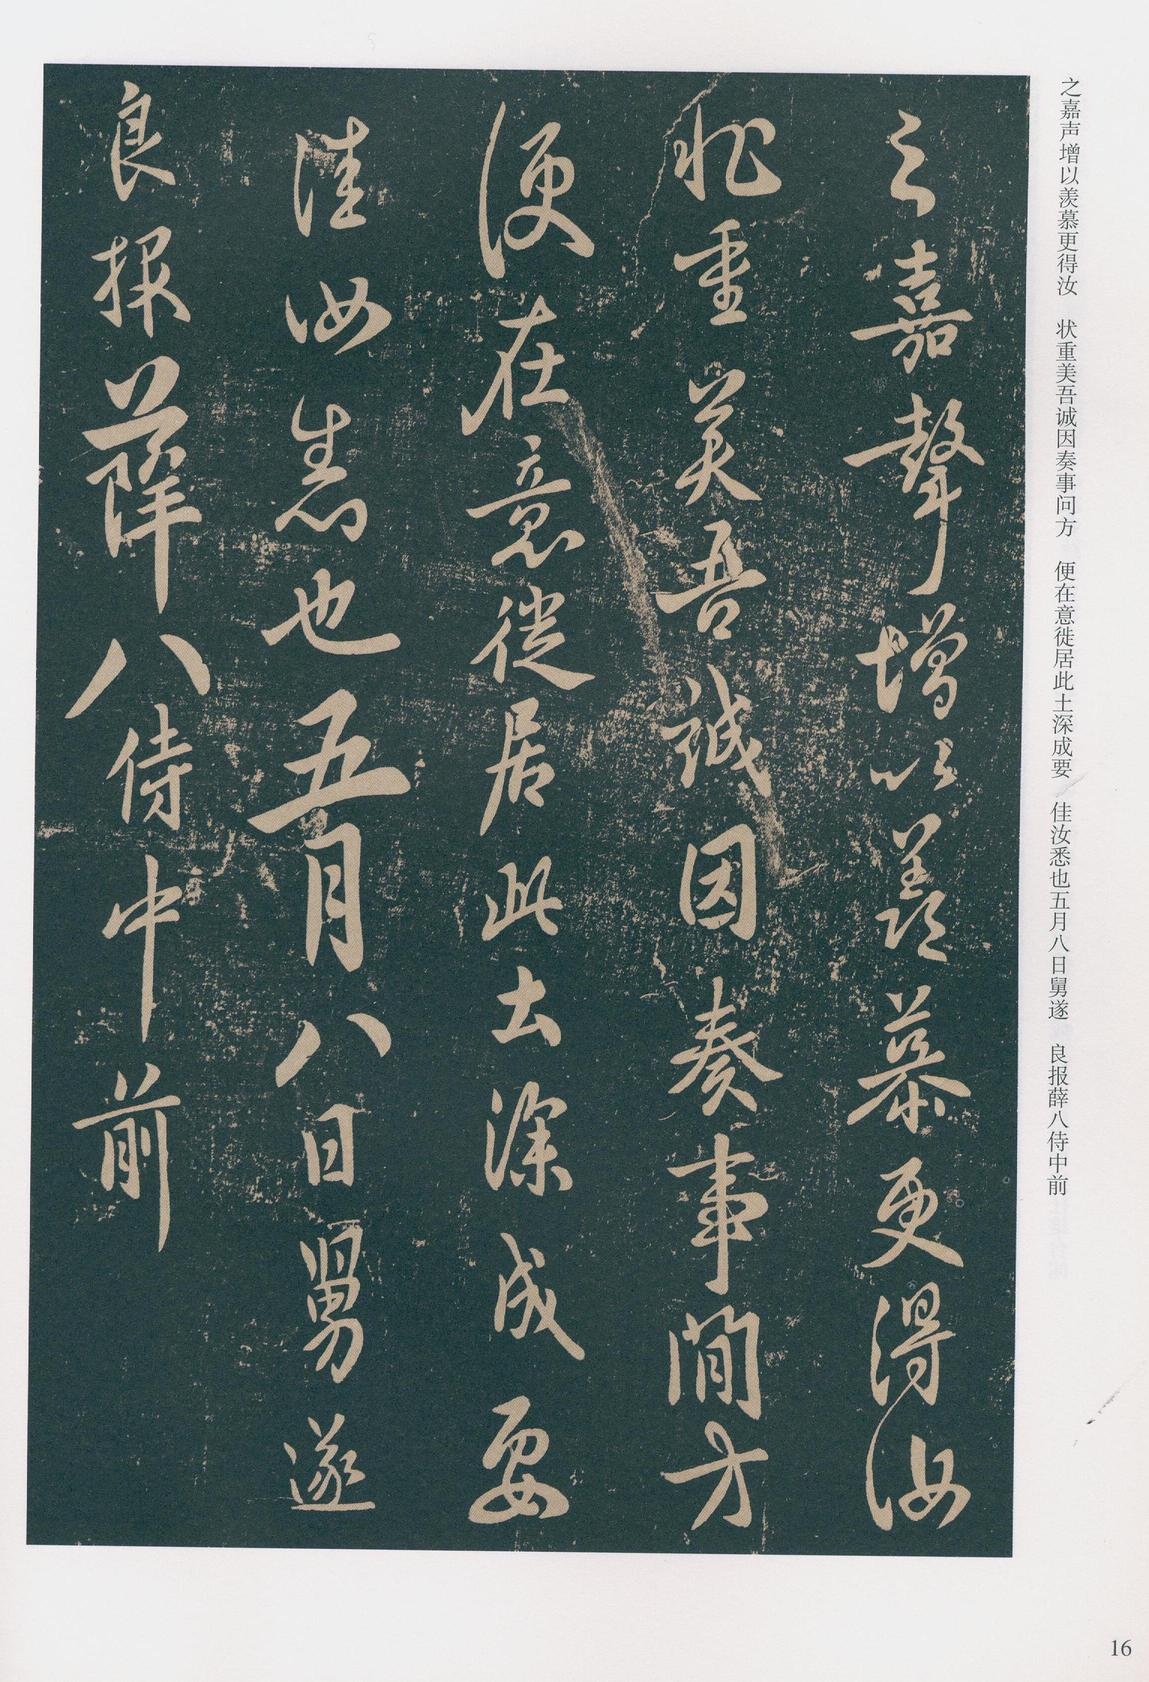 之嘉聲增以羡慕更得汝
状重美吾誠因奏事問方
便在意徙居此土深成要
佳汝悉也五月八日舅遂
良报薛八侍中前
之嘉声增以羡慕更得汝　状重美吾诚因奏事问方　便在意徙居此土深成要　佳汝悉也五月八日舅遂　良报薛八侍中前
16